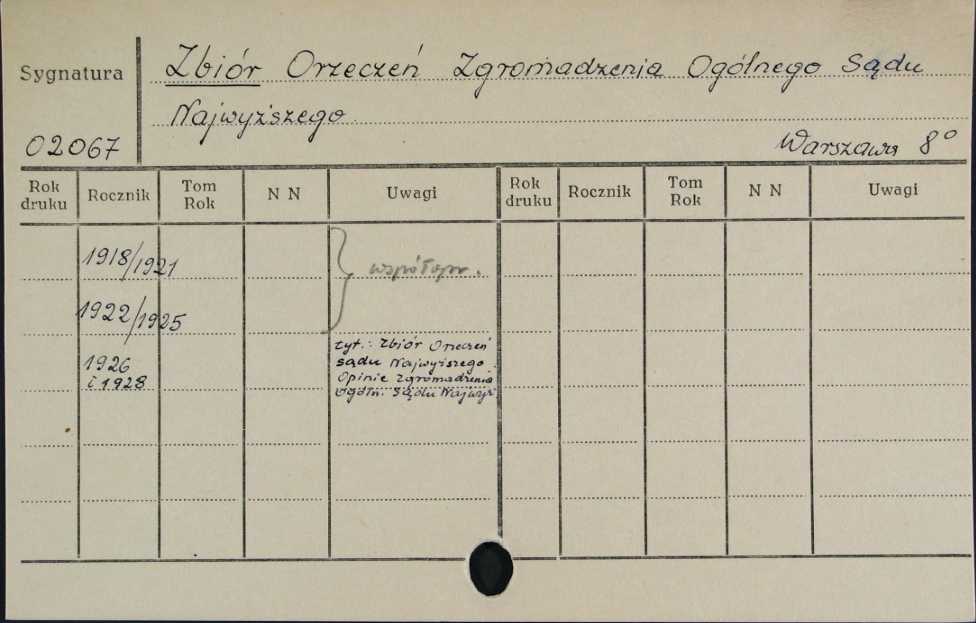 Sygnatura
Zbiór Orzeczeń Zgromadzenia Ogólnego Sądu
Najwyższego.
02067
Warszawa 8°
Rok druku Rocznik Tom Rok N N Uwagi Rok druku Rocznik Tom Rok N N Uwagi
1918/1921
współopr.
1922/1925
1926
i 1928
tyt.: Zbiór Orzeczeń
Sądu Najwyższego.
Opinie Zgromadzenia
Ogóln. Sądu Najwyż.